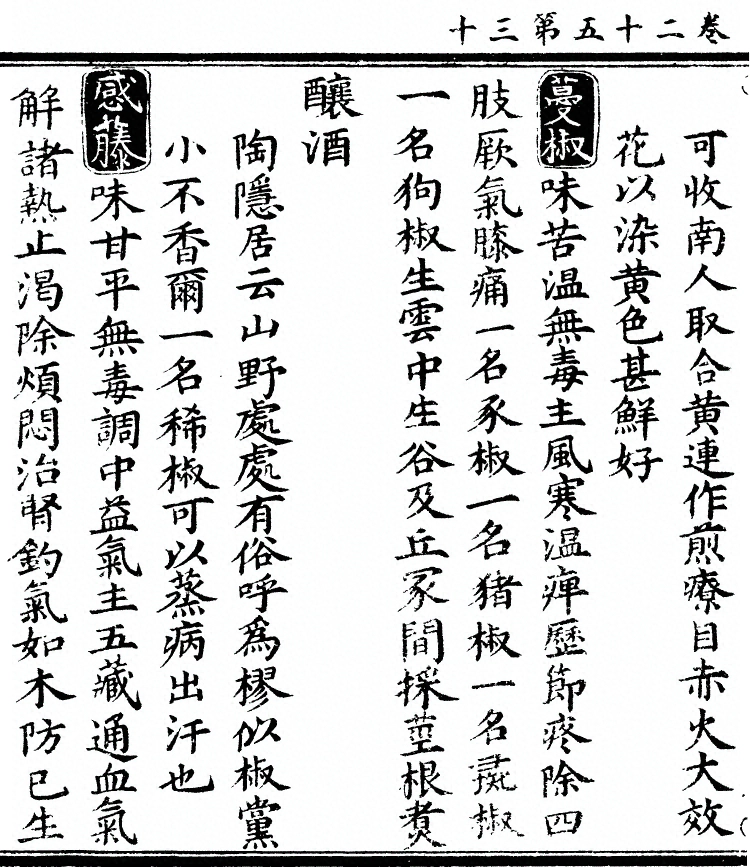 卷二十五第三十
可收南人取合黄連作煎療目赤火大效
花以染黄色甚鮮好
蔓椒味苦温無毒主風寒温痺歷節疼除四
肢厥氣膝痛一名豕椒一名猪椒一名彘椒
一名狗椒生雲中生谷及丘冢間採莖根煑
釀酒
陶隱居云山野處處有俗呼爲樛似椒黨
小不香爾一名稀椒可以蒸病出汗也
感藤味甘平無毒調中益氣主五藏通血氣
解諸熱止渴除煩悶治腎釣氣如木防已生